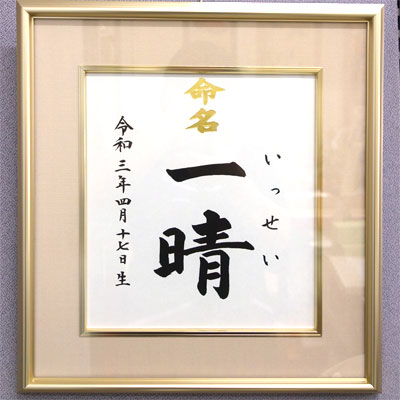 命名
いっせい
一晴
令和三年四月十七日生